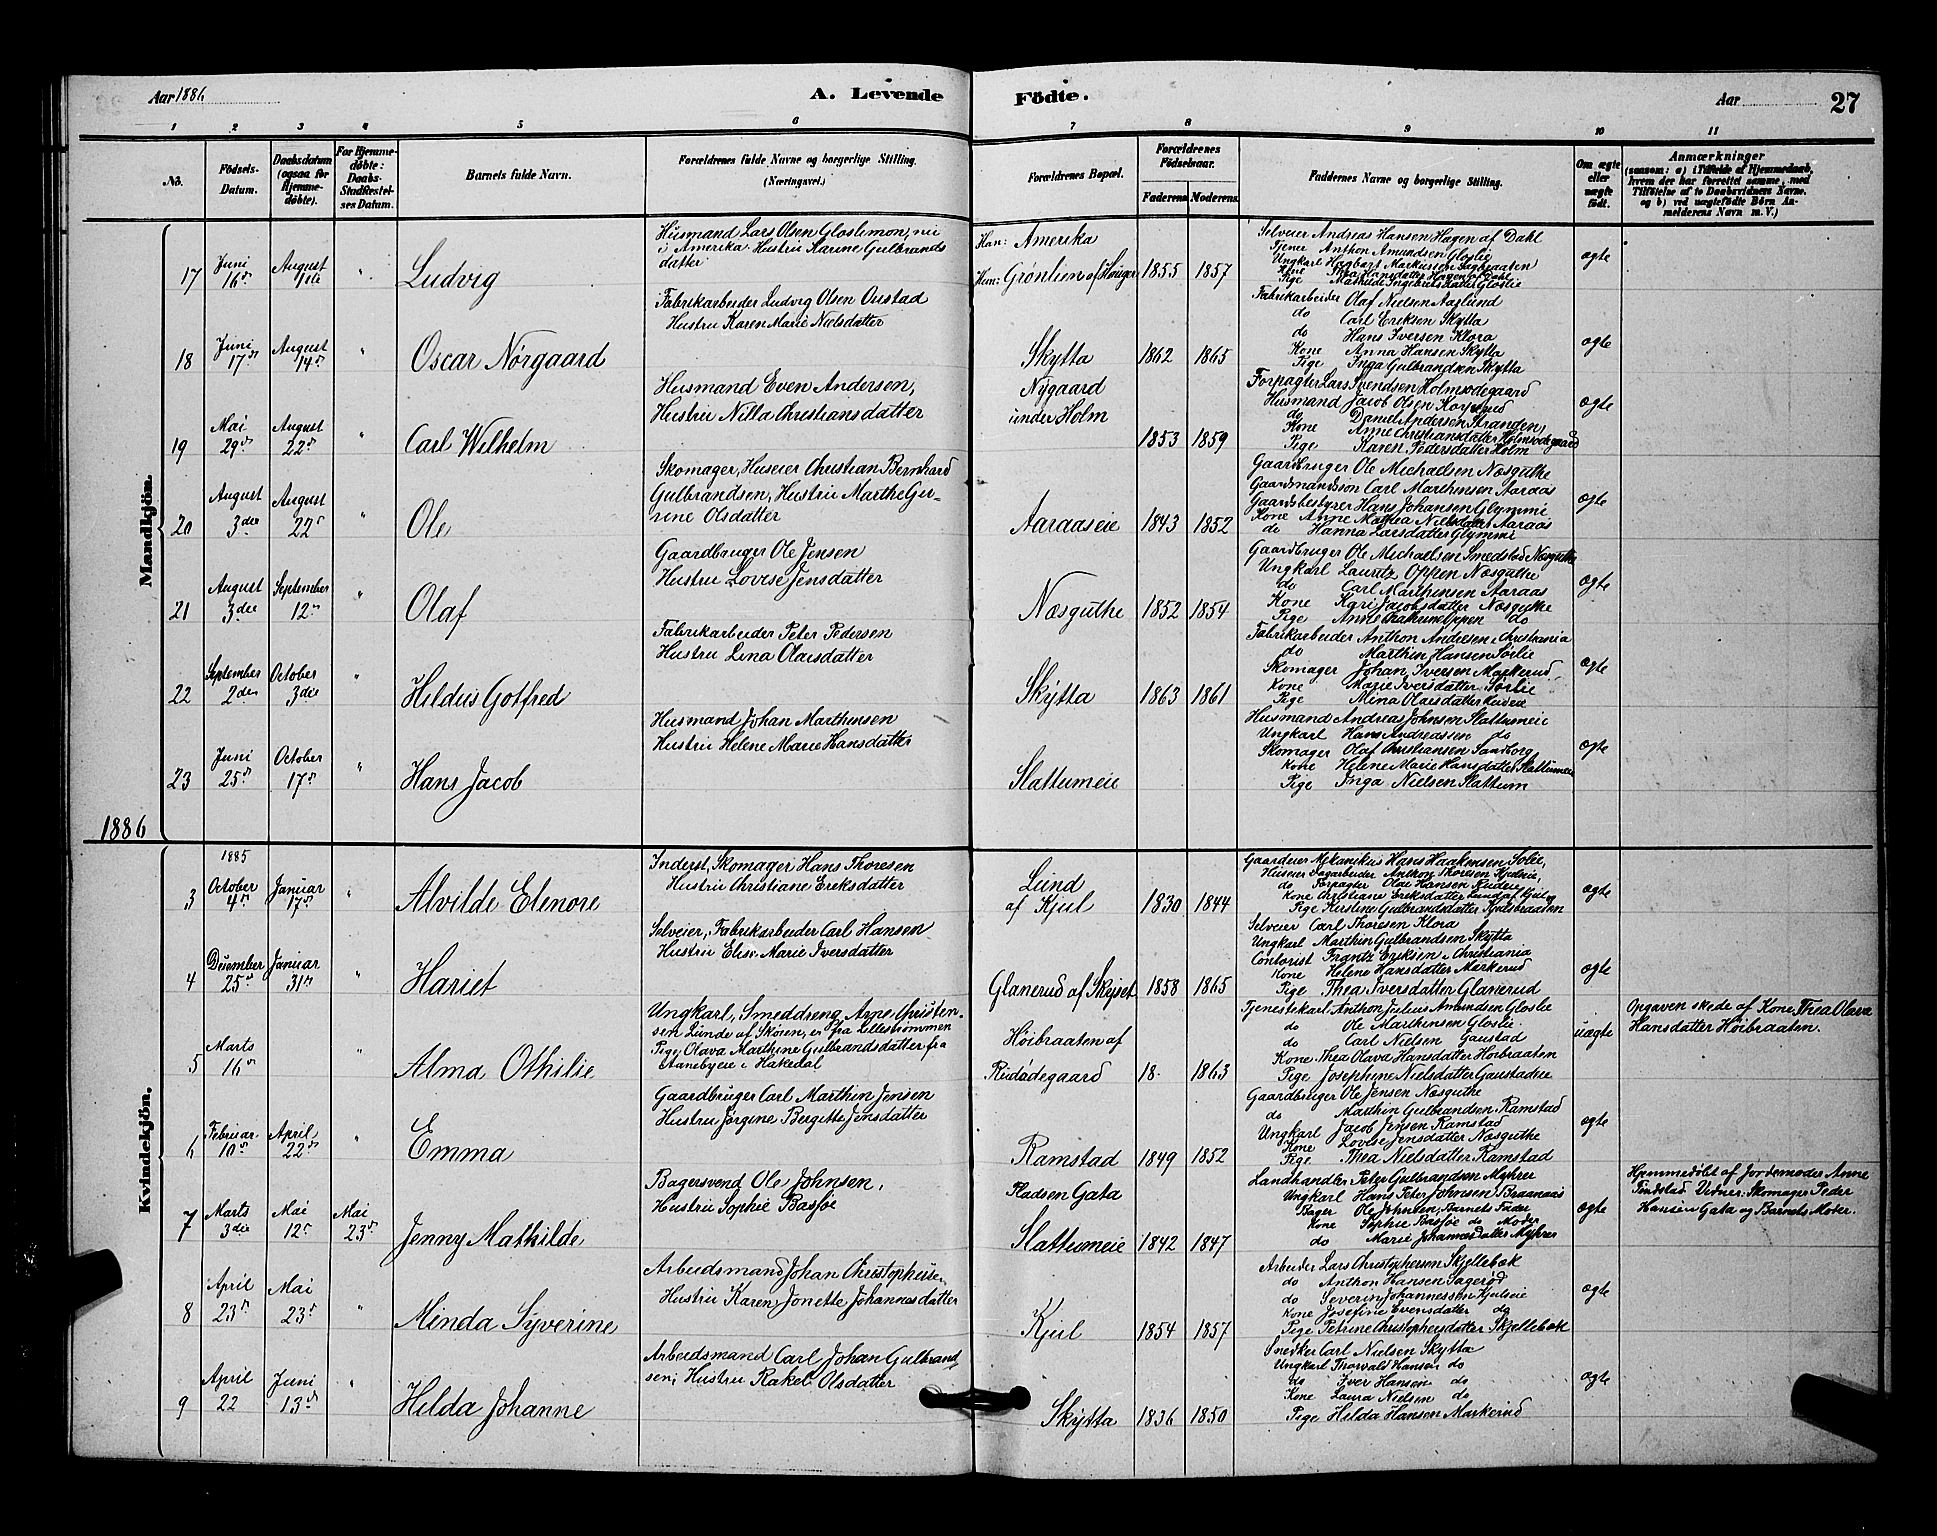 Aar 1886
A. Levende
Födte.
Aar
27
1 2 3 4 5 6 7 8 9 10 11
No.
Födsels-
Datum.
Daabsdatum
(ogsaa for
Hjemme-
døbte).
For Hjemme-
døbte:
Daabs-
Stadfæstel-
ses Datum.
Barnets fulde Navn.
Forældrenes fulde Navne og borgerlige Stilling.
(Næringsvei.)
Forældrenes Bopæl.
Forældrenes
Födselsaar.
Faderens Moderens
Faddernes Navne og borgerlige Stilling.
Om ægte
eller
uægte
födt.
Anmærkninger
(saasom: a) i Tilfælde af Hjemmedaab,
hvem der har forrettet samme, med
Tilföielse af to Daabsvidners Navne,
og b) ved uægtefödte Börn An-
melderens Navn m. V.)
Mandkjön.
17
Juni
16de
August
1ste
"
Ludvig
Husmand Lars Olsen Gloslimon, nu
i Amerika. Hustru Karine Gulbrands
datter
Han: Amerika
Hun: Grönlien af Hauger
1855 1857
Selveier Andreas Hansen Hagen af Dahl
Tjener Anthon Amundsen Gloslie
Ungkarl Hagbart Markussen Sagbraaten
Kone Thea Hansdatter Hagen af Dahl
Pige Mathilde Ingebretsdatter Gloslie
ægte
18
Juni
17de
August
14de
"
Oscar Nørgaard
Fabrikarbeider Ludvig Olsen Oustad
Hustru Karen Marie Nielsdatter
Skytta
1862 1865
Fabrikarbeider Olaf Nielsen Aaslund
do Carl Eriksen Skytta
do Hans Iversen Klora
Kone Anna Hansen Skytta
Pige Inga Gulbrandsen Skytta
ægte
19
Mai
29de
August
22de
"
Carl Wilhelm
Husmand Even Andersen,
Hustru Nilla Christiansdatter
Nygaard
under Holm
1853 1859
Forpagter Lars Svendsen Holmsødegaard
Husmand Jacob Olsen
do Daniel Andersen Stranden,
Kone Anne Christiansdatter Holmsødegaard
Pige Karen Pedersdatter Holm
ægte
20
August
3die
August
22de
"
Ole
Skomager, Huseier Christian Bernhard
Gulbrandsen, Hustru Marthe Ger-
rine Olsdatter
Aaraaseie
1843 1852
Gaardbruger Ole Michaelsen Næsguthe
Gaardmandssøn Carl Marthinsen Aaraas
Gaardsbestyrer Hans Johansen Glymmi
Kone Anne Mathea Nielsdatter Aaraas
do Hanna Larsdatter Glymmi
ægte
21
August
3die
September
12te
"
Olaf
Gaardbruger Ole Jensen
Hustru Lovise Jensdatter
Næsguthe
1852 1854
Gaardbruger Ole Michaelsen Smedstad Næsguthe
Ungkarl Lauritz Oppen Næsguthe
do Carl Marthinsen Aaraas
Kone Kari Jacobsdatter Næsguthe
Pige Anne Oppen do
ægte
22
September
2den
October
3die
"
Hildus Gotfred
Fabrikarbeider Peter Pedersen
Hustru Lina Olausdatter
Skytta
1863 1861
Fabrikarbeider Anthon Andersen Christiania
do Marthin Hansen Sørlie
Skomager Johan Iversen Markerud
Kone Marie Iversdatter Sørlie
Pige Mina Olausdatter
ægte
23
Juni
25de
October
17de
"
Hans Jacob
Husmand Johan Marthinsen
Hustru Helene Marie Hansdatter
Slattumeie
Husmand Andreas Johnsen Slattumeie
Ungkarl Hans Andreassen do
Skomager Olaf Christiansen Sandborg
Kone Helene Marie Hansdatter Slattumeie
Pige Inga Nielsen Slattum
ægte
1886
Kvindekjön.
1885
3
October
4de
Januar
17de
"
Alvilde Elenore
Inderst, Skomager Hans Thoresen
Hustru Christiane Eriksdatter
Lund
af Kjul
1830 1844
Gaardeier Mekanikus Hans Haakensen Solie,
Huseier Dagarbeider Anthon Thoresen Kjulseie,
do Forpagter Olai Hansen Rudeie
Kone Christiane Eriksdatter Lund af Kjul
Pige Kirstine Gulbrandsdatter Kjulsbraaten
ægte
4
December
25de
Januar
31te
"
Hariet
Selveier, Fabrikarbeider Carl Hansen
Hustru Elise Marie Iversdatter
Glanerud af Skyset
1858 1865
Selveier Carl Thoresen Klora
Ungkarl Marthin Gulbrandsen Skytta
Contorist Frantz Eriksen Christiania
Kone Helene Hansdatter Markerud
Pige Thea Iversdatter Glanerud
ægte
5
Marts
16de
"
Alma Othilie
Ungkarl, Smeddreng Arne Christen-
sen Lunde af Skøien, er fra Lillestrømmen
Pige Olava Marthine Gulbrandsdatter fra
Stanebyeie i Hakedal
Høibraaten af
Rudødegaard
18 1863
Tjenestekarl Anthon Julius Amundsen Gloslie
do Ole Marthinsen Gloslie
do Carl Nielsen Gaustad
Kone Thea Olava Hansdatter Høibraaten
Pige Josephine Nielsdatter Gaustadeie
uægte
Opgaven skede af Kone Thea Olava
Hansdatter Høibraaten.
6
Februar
10de
April
22de
"
Emma
Gaardbruger Carl Marthin Jensen
Hustru Jørgine Bergitte Jensdatter
Ramstad
1849 1852
Gaardbruger Ole Jensen Næsguthe
do Marthin Gulbrandsen Ramstad
Ungkarl Jacob Jensen Ramstad
Kone Lovise Jensdatter Næsguthe
Pige Thea Nielsdatter Ramstad
ægte
7
Marts
3die
Mai
12te
Mai
23de
Jenny Mathilde
Bagersvend Ole Johnsen,
Hustru Sophie Bassøe
Pladsen Gata
Slattumeie
1842 1847
Landhandler Peter Gulbrandsen Myhrer
Ungkarl Hans Peter Johnsen Braanaas
Bager Ole Johnsen, Barnets Fader
Kone Sophie Bassøe do Moder
do Marie Johannesdatter Myhrer
ægte
Hjemmedøbt af Jordemoder Anne
Tindstad. Vidner: Skomager Peder
Hansen Gata og Barnets Moder.
8
April
23de
Mai
23de
"
Minda Syverine
Arbeidsmand Johan Christophersen,
Hustru Karen Jonette Johannesdatter
Kjul
1854 1857
Arbeider Lars Christophersen Skjellebæk
do Anthon Hansen Sagerød
do Severin Johannessen Kjulseie
Kone Josefine Evensdatter do
Pige Petrine Christophersdatter Skjellebæk
ægte
9
April
22
Juni
13de
"
Hilda Johanne
Arbeidsmand Carl Johan Gulbrand
sen; Hustru Rakel Olsdatter
Skytta
1836 1850
Snedker Carl Nielsen Skytta
Ungkarl Thorvald Hansen do
do Iver Hansen do
Kone Laura Nielsen do
Pige Hilda Hansen Markerud
ægte